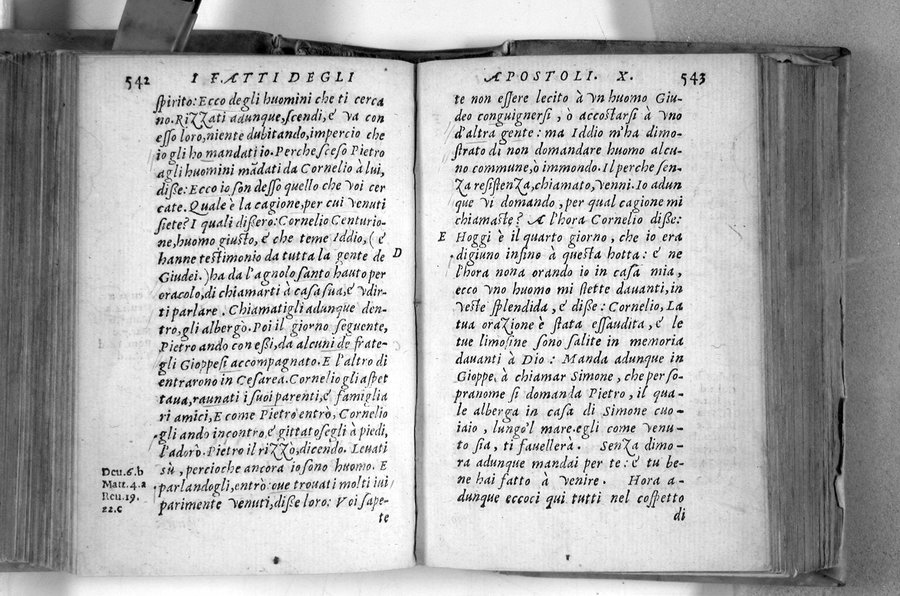 542 I FATTI DEGLI
ſpirito: Ecco degli huomini che ti cerca
no. Rizzati adunque, ſcendi, & va con
eſſo loro, niente dubitando, impercio che
io gli ho mandati io. Perche ſceso Pietro
agli huomini mādati da Cornelio à lui,
diſſe: Ecco io ſon deſſo quello che voi cer
cate. Quale è la cagione, per cui venuti
ſiete? I quali diſſero: Cornelio Centurio-
ne, huomo giuſto, & che teme Iddio, (&
hanne teſtimonio da tutta la gente de
D
Giudei.) ha da l'agnolo santo hauto per
oracolo, di chiamarti à caſa ſua, & vdir-
ti parlare. Chiamatigli adunque den-
tro, gli albergò. Poi il giorno ſeguente,
Pietro ando con eßi, da alcuni de frate-
gli Gioppeſi accompagnato. E l'altro dì
entrarono in Ceſarea. Cornelio gli aſpet
taua, raunati i ſuoi parenti, & famiglia
ri amici, E come Pietro entrò, Cornelio
gli ando incontro & gittatoſegli à piedi,
l'adorò. Pietro il rizzò, dicendo. Leuati
sù, percioche ancora io ſono huomo. E
parlandogli, entrò oue trouati molti iui
parimente venuti, diſſe loro: Voi ſape-
te
Deu.6.b
Matt.4.a
Reu.19.
22.c
APOSTOLI. X. 543
te non eſſere lecito à vn huomo Giu-
deo conguignerſi, ò accoſtarſi à vno
d'altra gente: ma Iddio m'ha dimo-
ſtrato di non domandare huomo alcu-
no commune, ò immondo. Il perche ſen-
za reſiſtenza, chiamato, venni. Io adun
que vi domando, per qual cagione mi
chiamaſte? A l'hora Cornelio diſſe:
E
Hoggi è il quarto giorno, che io era
digiuno inſino à queſta hotta: & ne
l'hora nona orando io in caſa mia,
ecco vno huomo mi ſtette dauanti, in
veſte ſplendida, & diſſe: Cornelio, La
tua orazione è ſtata eſſaudita, & le
tue limoſine ſono ſalite in memoria
dauanti à Dio: Manda adunque in
Gioppe à chiamar Simone, che per ſo-
pranome ſi domanda Pietro, il qua-
le alberga in caſa di Simone cuo-
iaio, lungo'l mare. egli come venu-
to ſia, ti fauellerà. Senza dimo-
ra adunque mandai per te: & tu be-
ne hai fatto à venire. Hora a-
dunque eccoci qui tutti nel coſpetto
di